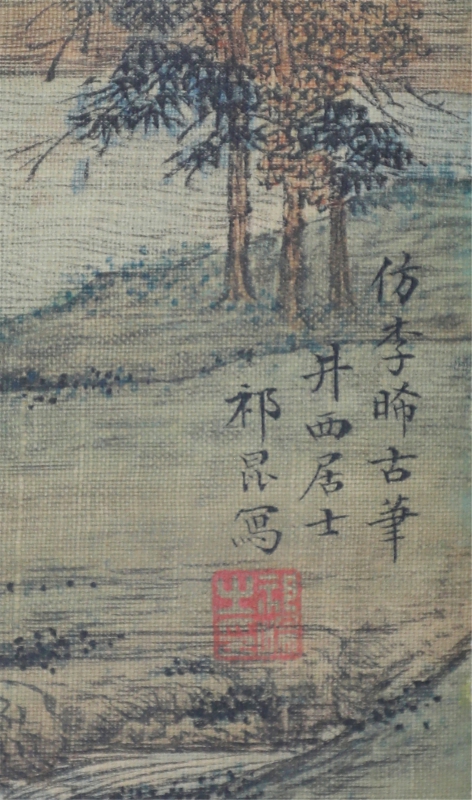 仿李晞古筆
井西居士
祁昆寫